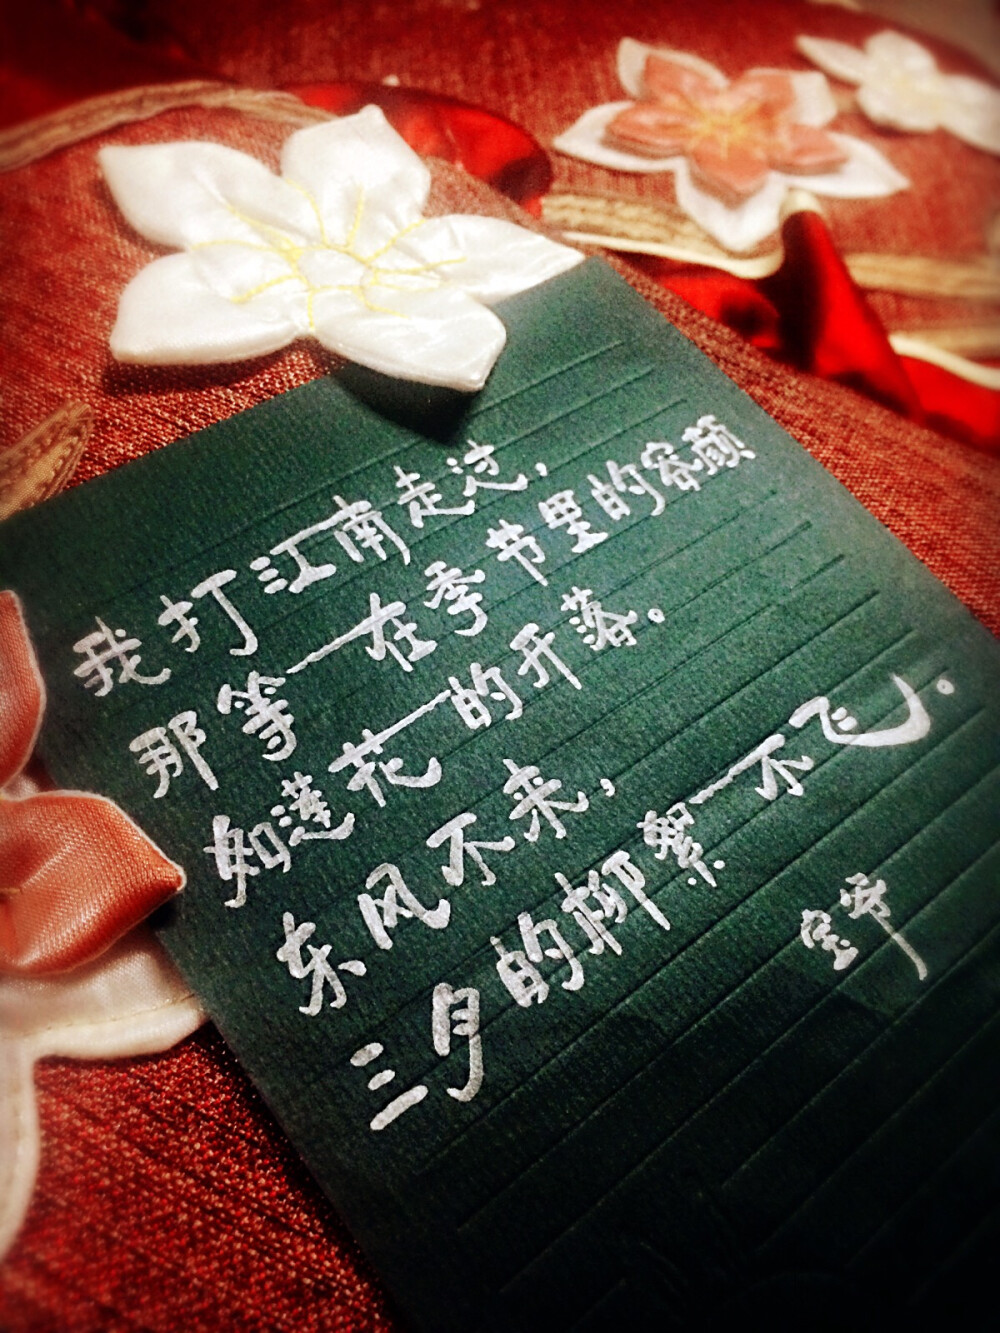 我打江南走过，
那等在季节里的容颜
如蓮花的开落。
东风不来，
三月的柳絮不飞。